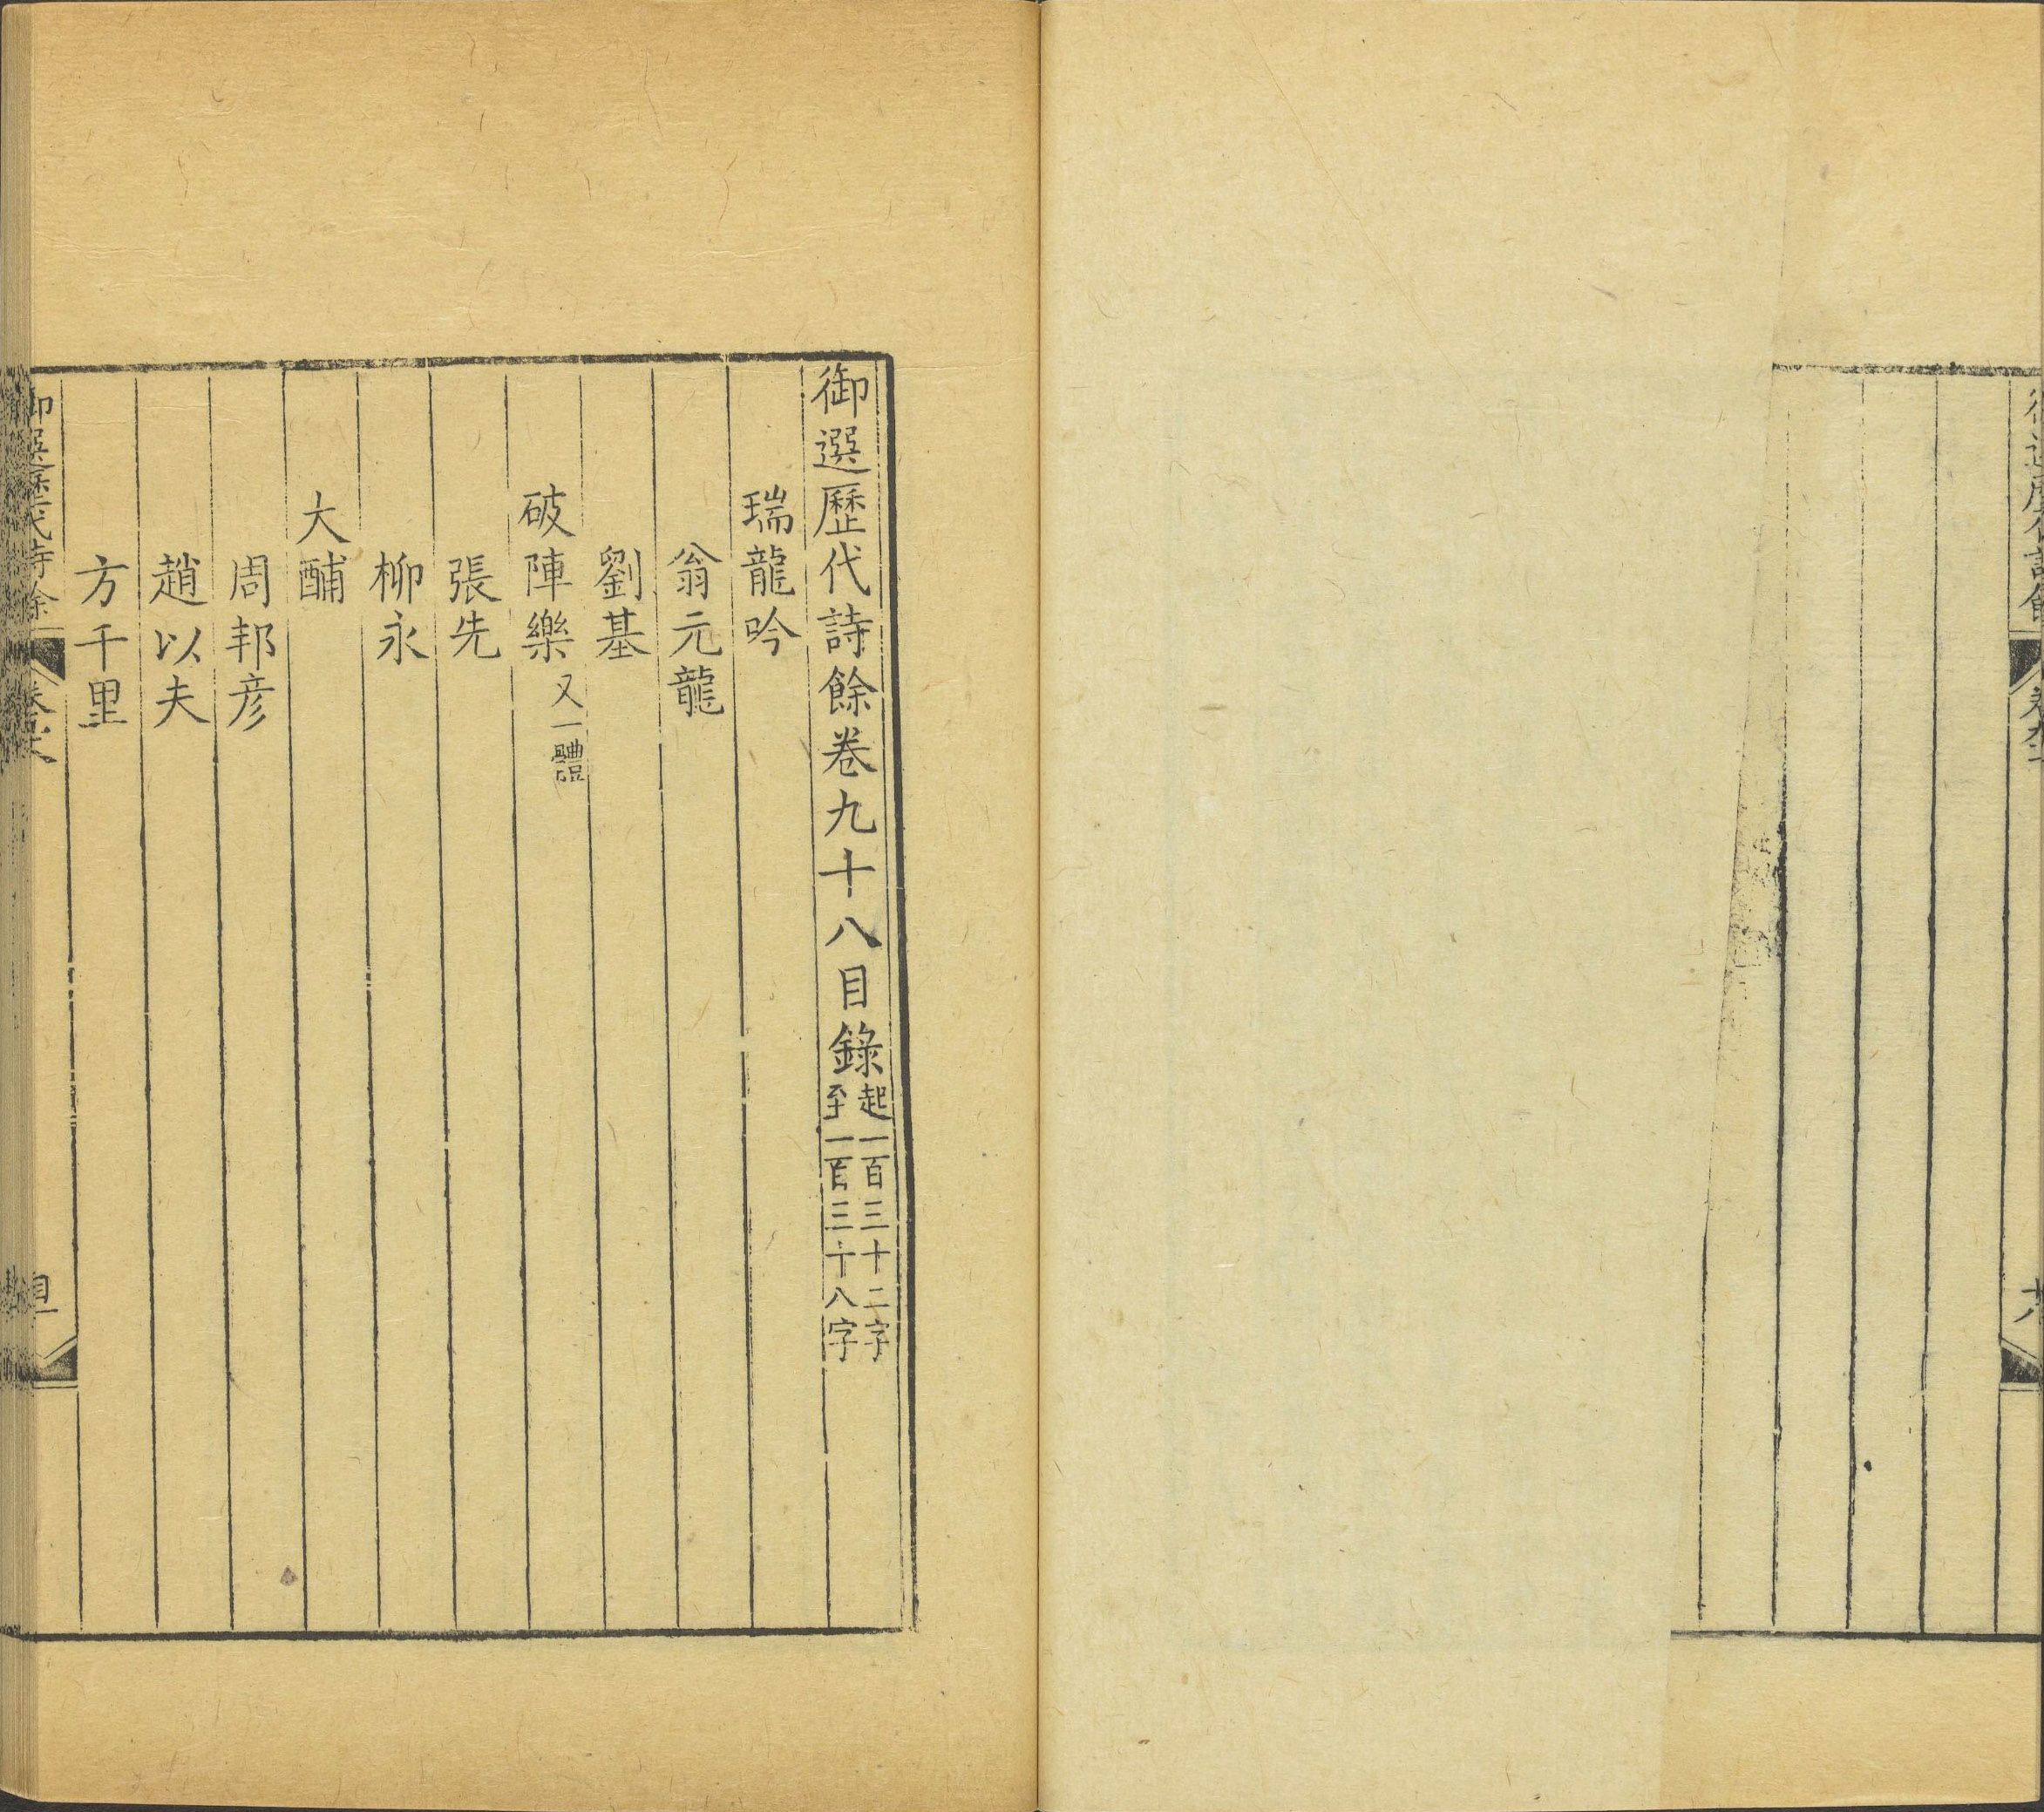 御選歷代詩餘卷九十八目錄起一百三十二字
至一百三十八字
瑞龍吟
翁元龍
劉基
破陣樂又一體
張先
柳永
大酺
周邦彦
趙以夫
方千里